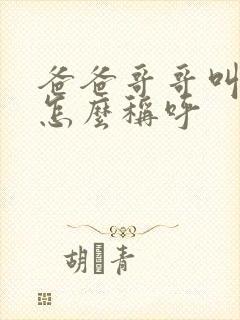 爸爸哥哥叫
怎麼稱呼
胡青